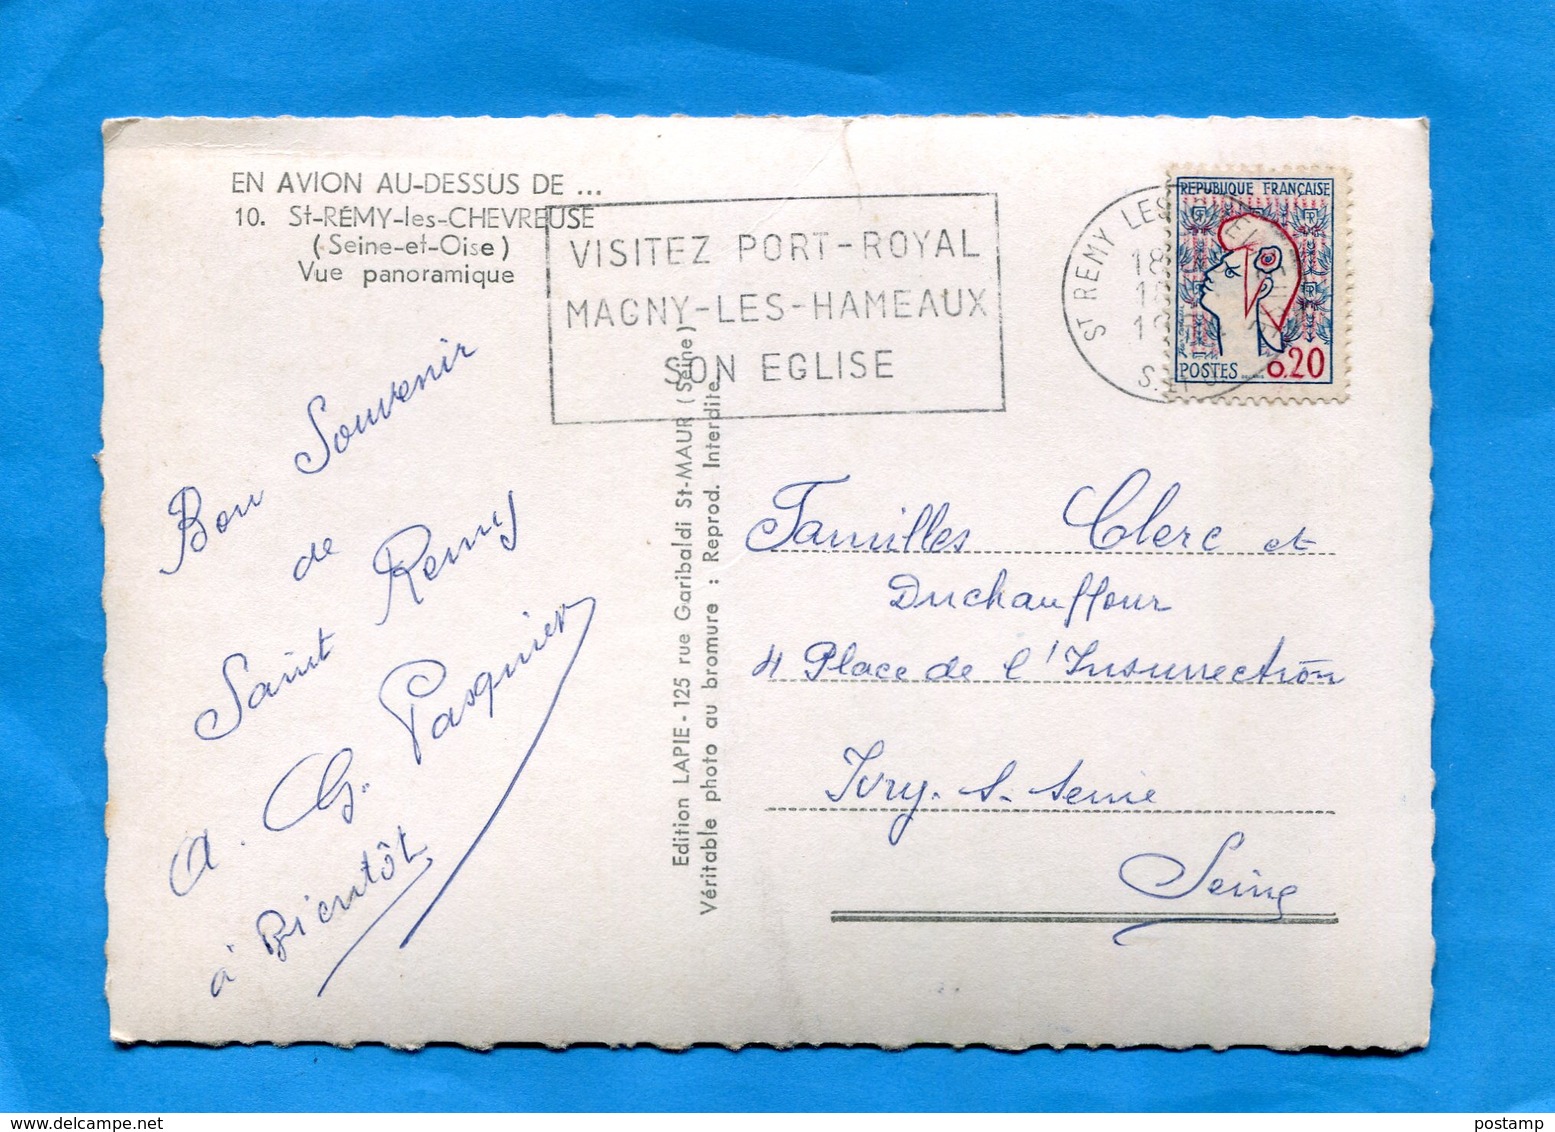 EN AVION AU-DESSUS DE ...
10. St-RÉMY-les-CHEVREUSE
(Seine-et-Oise)
Vue panoramique
VISITEZ PORT-ROYAL
MAGNY-LES-HAMEAUX
SON EGLISE
ST REMY LES
18
REPUBLIQUE FRANÇAISE
POSTES 0.20
Bon Souvenir
de
Saint Remy
Pasquier
à Bientôt
Edition LAPIE - 125 rue Garibaldi St-MAUR (Seine)
Véritable photo au bromure : Reprod. Interdite
Familles Clerc et
Duchauffour
4 Place de l'Insurrection
Ivry. s. Seine
Seine
postamp